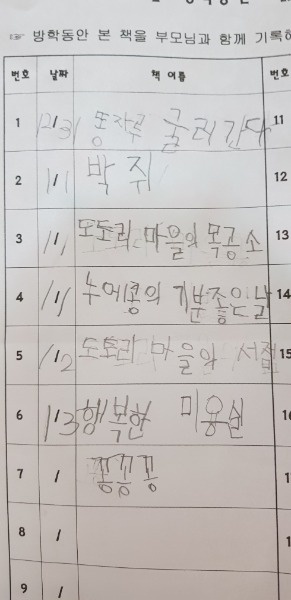 ☞ 방학동안 본 책을 부모님과 함께 기록하
번호 날짜 책 이름 번호
1 12/31 똥자루 굴러간다 11
2 1/1 박쥐 12
3 1/1 도토리 마을의 목공소 13
4 1/1 누에콩의 기분좋은날 14
5 1/2 도토리 마을의 서점 15
6 1/3 행복한 미용실 16
7 / 꽁꽁꽁
8 /
9 /